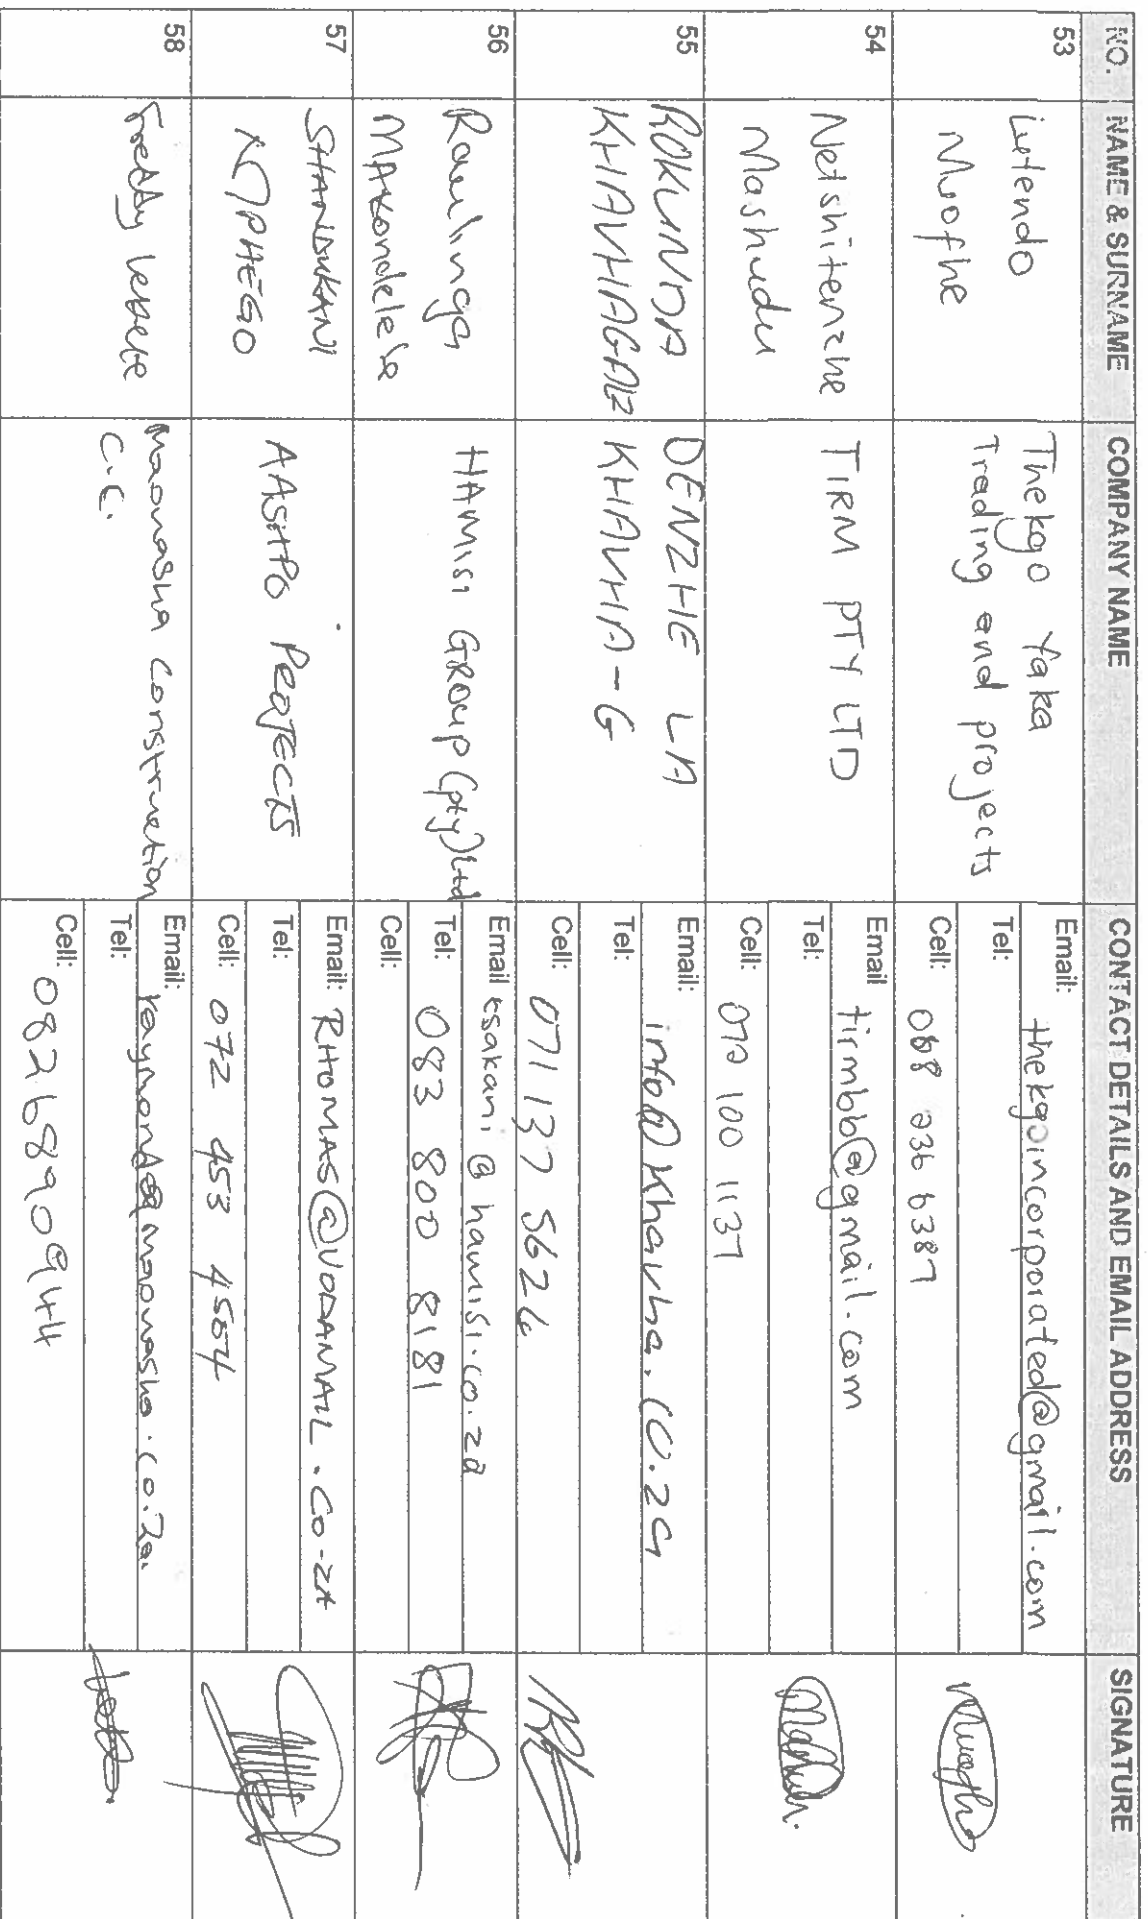 NO. NAME & SURNAME COMPANY NAME CONTACT DETAILS AND EMAIL ADDRESS SIGNATURE
53
Lutendo
Muofhe
Thekgo Yaka
Trading and projects
Email: thekgoincorporated@gmail.com
Tel:
Cell: 036 6387
54
Netshitenzhe
Mashudu
TIRM PTY LTD
Email tirmbb@gmail.com
Tel:
Cell: 072 100 1137
55
ROKUNDA
KHAVHAGALI
DENZHE LA
KHAVHA-G
Email: info@khavha.co.za
Tel:
Cell: 071 137 5624
56
Rawlinga
Makondelela
HAMISI GROUP (pty)Ltd
Email: tsakani@hamisi.co.za
Tel: 083 800 8181
Cell:
57
SHANDUKANI
AASHPO PROJECTS
Email: RHOMAS@VODAMAIL.CO-ZA
Tel:
Cell: 072 453 4564
58
Freddy
Maonasha Construction
C.C.
Email: raymond@maonasha.co.za.
Tel:
Cell: 0826890944